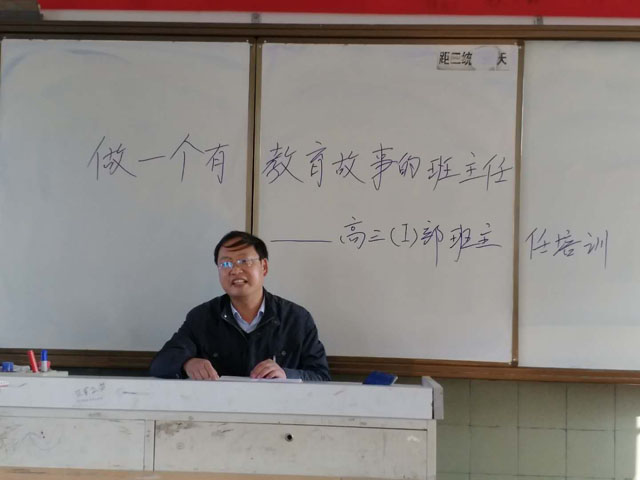 距三统 天
做一个有教育故事的班主任
——高三(Ⅰ)部班主任培训